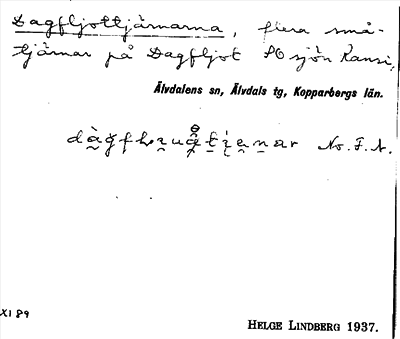 Dagfljottjärnarna, flera små-
tjärnar på Dagfljot SO sjön Kansi,
Älvdalens sn, Älvdals tg, Kopparbergs län.
No. F. N.
XI 89
HELGE LINDBERG 1937.